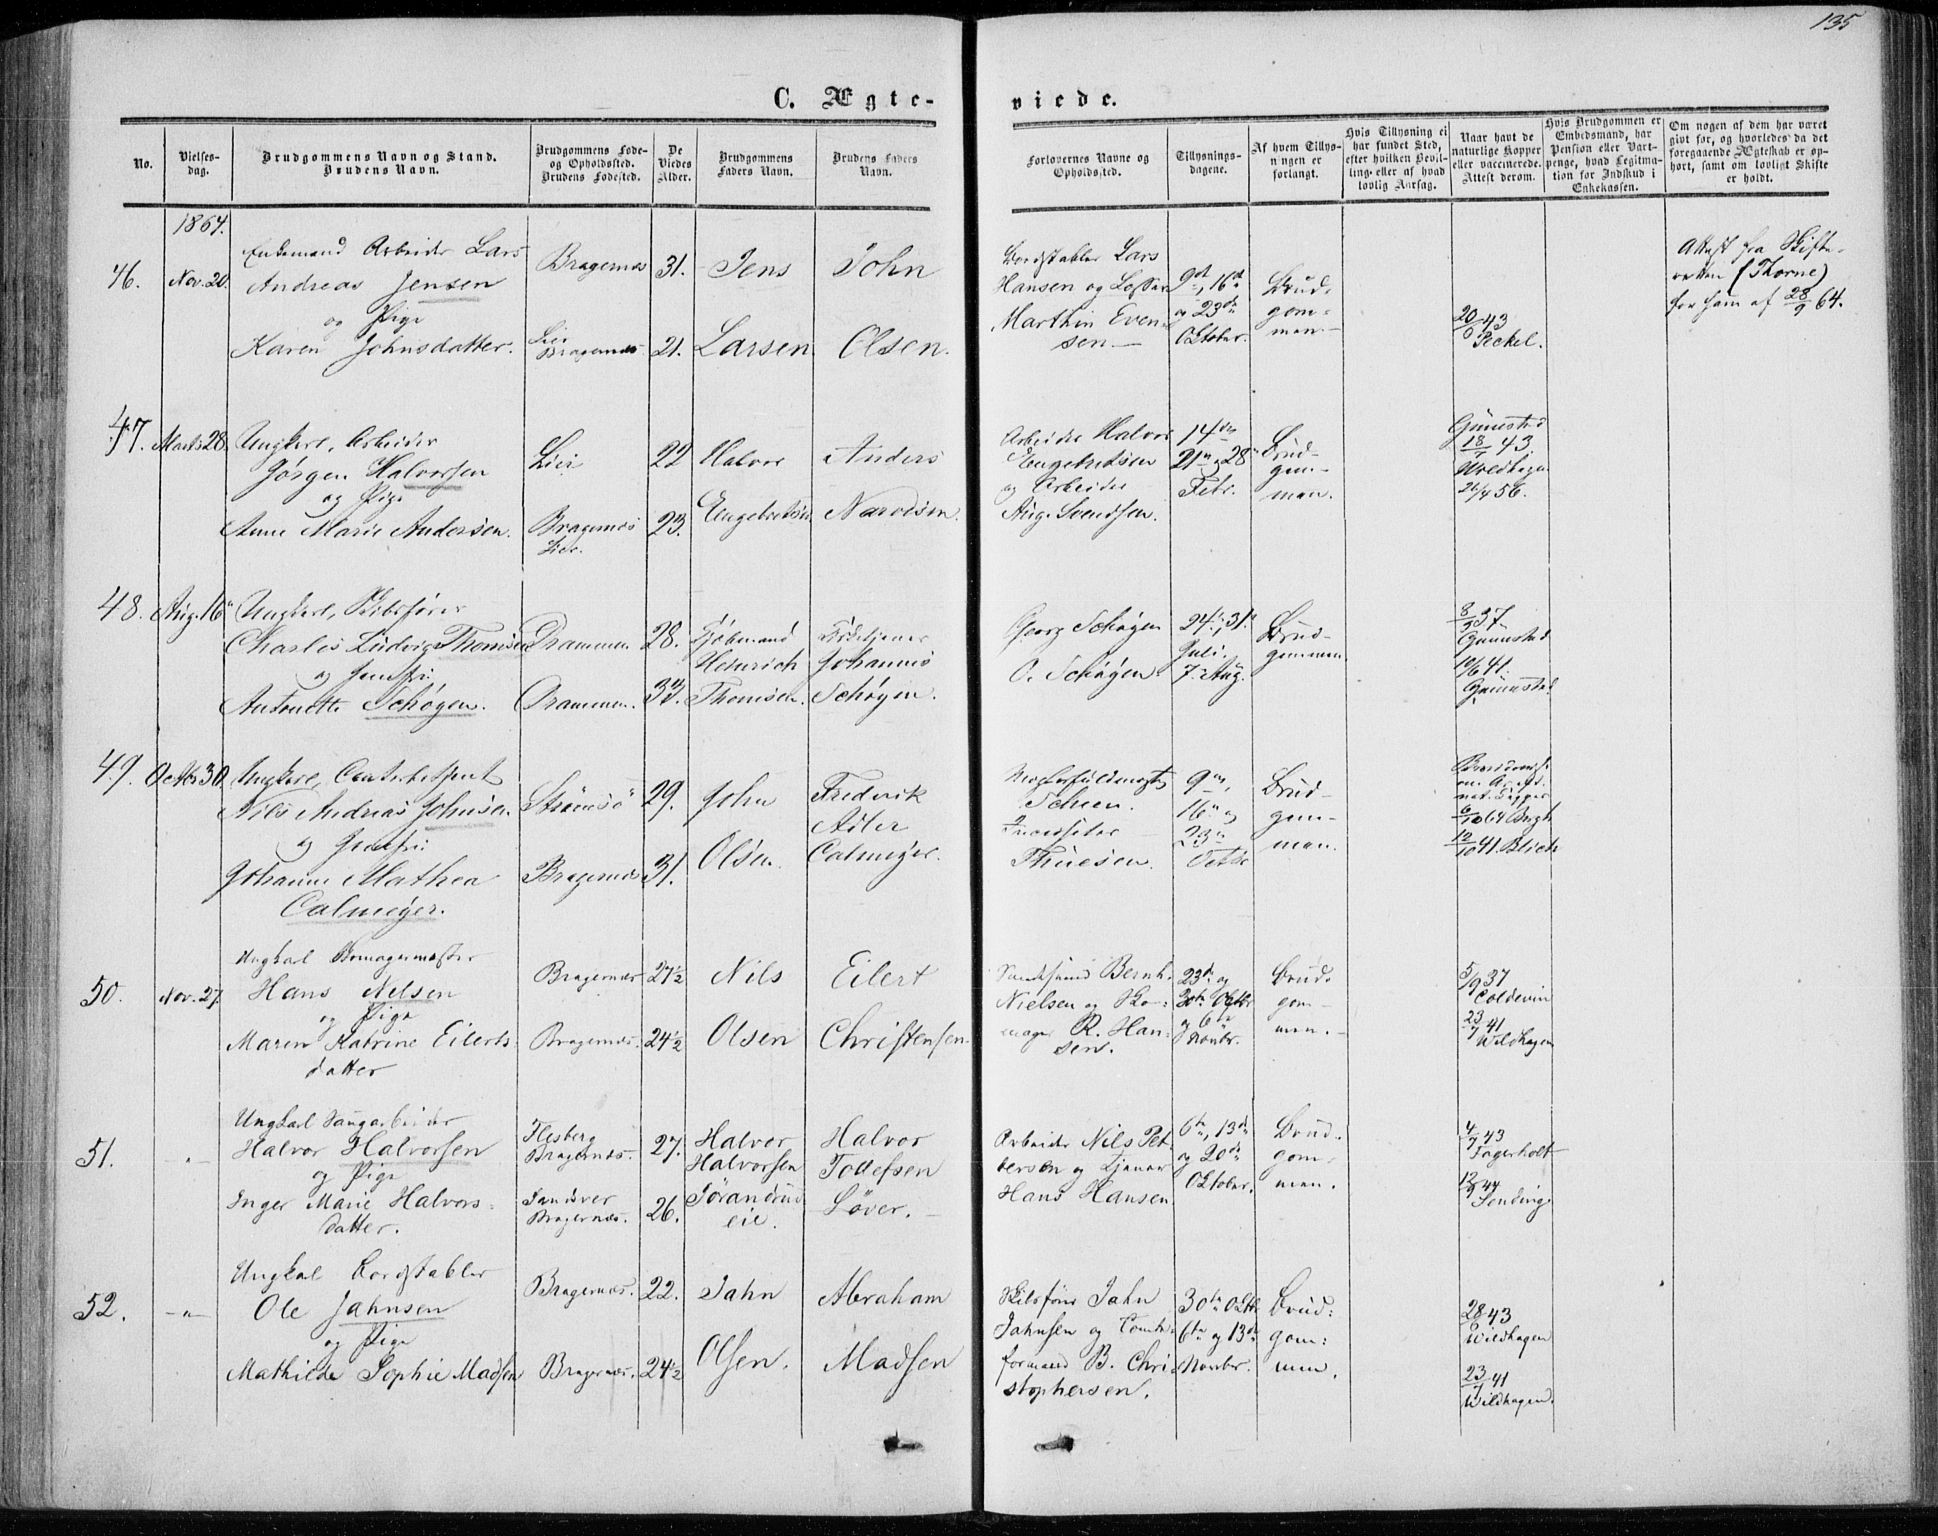 135
C. Ægte-
viede.
No.
Vielses-
dag.
Brudgommens Navn og Stand.
Brudens Navn.
Brudgommens Føde-
og Opholdssted.
Brudens Fødested.
De
Viedes
Alder.
Brudgommens
Faders Navn.
Brudens Faders
Navn.
Forlovernes Navne og
Opholdssted.
Tillysnings-
dagene.
Af hvem Tillys-
ningen er
forlangt.
Hvis Tillysning ei
har fundet Sted,
efter hvilken Bevil-
ling eller af hvad
lovlig Aarsag.
Naar havt de
naturlige Kopper
eller vaccinerede.
Attest derom.
Hvis Brudgommen er
Embedsmand, har
Pension eller Vart-
penge, hvad Legitima-
tion for Indskud i
Enkekassen.
Om nogen af dem har været
gift før, og hvorledes da det
foregaaende Ægteskab er op-
hørt, samt om lovligt Skifte
er holdt.
1864.
46. Nov. 20.
Enkemand Arbeider Lars
Andreas Jensen
og Pige
Karen Johnsdatter.
Bragernæs
Lier
Bragernæs
31.
21.
Jens
Larsen
John
Olsen.
Bordstabler Lars
Hansen og
Marthin Even-
sen
9de, 16de
og 23de
Oktober.
Brud-
gom-
men.
20/ 43
Attest fra Skifte-
retten (Thorne)
for ham af 28/9 64.
47. Marts 28.
Ungkarl, Arbeider
Jørgen Halvorsen
og Pige
Anne Marie Andersen.
Lier
Bragernæs
Lier.
22
23.
Halvor
Engebretsen
Anders
Narvesen.
Arbeider Halvor
Engebretsen
og Arbeider
Aug. Svendsen.
14de
21de og 28de
Febr.
Brud-
gom-
men.
18/ 43
Wildhagen
26/4 56.
48. Aug. 16
Ungkarl, Skibsfører
Charles Ludvig Thomsen
og Jomfru
Antonette Schøgen.
Drammen
Drammen.
28.
33.
Kjøbmand
Heinrich
Thomsen.
Johannes
Schøgen.
Georg Schøgen
O. Schøgen.
24de, 31te
Juli.
7de Aug.
Brud-
gommen.
8/9 37
10/6 41.
49. Octbr 30.
Ungkarl,
Nils Andreas Johnsen.
og Jomfru
Johanne Mathea
Calmeyer.
Strømsø
Bragernæs
29.
31.
John
Olsen.
Frederik
Adler
Calmeyer.
Scheen.
Thuesen.
9de,
16de og
23de
Octbr
Brud-
gom-
men.
6/10 64
12/10 41. Blich
50. Nov. 27
Ungkarl Skomagermester
Hans Nelsen
og Pige
Maren Katrine Eilerts-
datter
Bragernæs
Bragernæs.
27½
24½
Nils
Olsen
Eilert
Christensen.
Bernh.
Nielsen og Sko-
mager R. Han-
sen.
23de og
30te Oktbr
og 6te
Novbr.
Brud-
gom-
men.
5/9 37
Coldevin
23/7 41
Wildhagen
51. -"-
Ungkarl Saugarbeider
Halvor Halvorsen
og Pige
Inger Marie Halvors-
datter.
Flesberg
Bragernæs.
Sandsver
Bragernæs.
27.
26.
Halvor
Halvorsen
eie.
Halvor
Tollefsen
Arbeider Nils Pet-
tersen og Tjener
Hans Hansen
6te, 13de
og 20de
Oktober.
Brud-
gom-
men.
4/7 43
Fagerholt
44
52. -"-
Ungkal Bordstabler
Ole Jahnsen
og Pige
Mathilde Sophie Madsen
Bragernæs.
Bragernæs.
22.
24½
Jahn
Olsen.
Abraham
Madsen
Skibsfører Jahn
Jahnsen og
formand B. Chri-
stophersen.
30te Oktbr
6te og 13de
Novbr.
Brud-
gom-
men.
28/ 43
Wildhagen
23/7 41
Wildhagen.